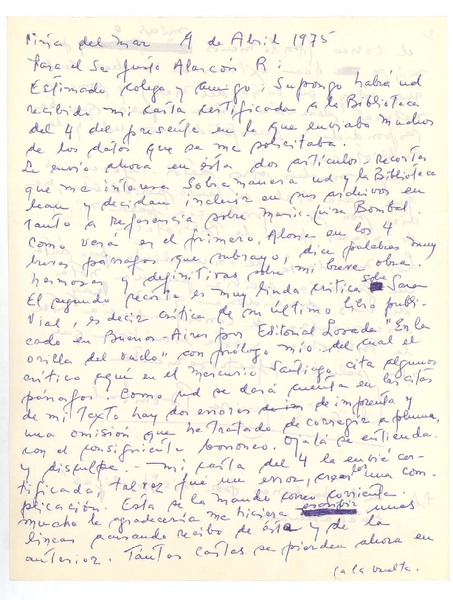 Viña del mar 9 de Abril 1975
Para el Sr Justo Alarcón R:
Estimado colega y amigo: Supongo habrá ud
recibido mi carta certificada a la Biblioteca
del 4 del presente en la que enviaba muchos
de los datos que se me solicitaba.
Le envio ahora en ésta dos articulos - recortes
que me interesa sobremanera ud y la Biblioteca
lean y decidan incluir en sus archivos en
tanto a Referencia sobre Maria-Luisa Bombal.
Como verá en el primero, Alone en los 4
párrafos que subrayo, dice palabras muy
hermosas y definitivas sobre mi breve obra.
El segundo recorte es muy linda critica sobre Sara
Vial, es decir critica de su último libro publi-
cado en Buenos-Aires por Editorial Losada "En la
orilla del vuelo" con prólogo mio. del cual el
critico aquí en el mercurio Santiago cita algunos
párrafos. Como ud se dará cuenta en las citas
de mi Texto hay dos errores de imprenta y
una omisión que he tratado de corregir a pluma,
con el consiguiente borroneo. Ojalá se entienda.
y disculpe. - mi carta del 4 la envié cer-
tificada, talvez fué un error, creales una com-
plicación. Esta se la mando correo corriente.
mucho le agradecería me hiciera escribir unas
lineas acusando recibo de ésta y de la
anterior. Tantas cartas se pierden ahora en
(a la vuelta.